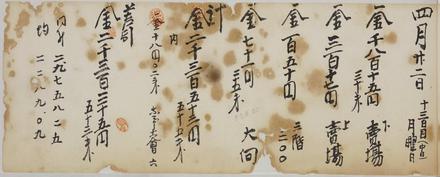 四月廿二日
十三日目(中日)
月曜日
金千八百十五円
三十末
下
賣場
金三百十七円
上
賣場
金百五十円
二階
三〇〇
金七十一円
三五末
大向
計
金二千三百五十三円
内
五十五末
金十八円〇二末
差引
金二千三百三十五円
五十三末
同計 二六七五八.二五
均 二二八九.〇九